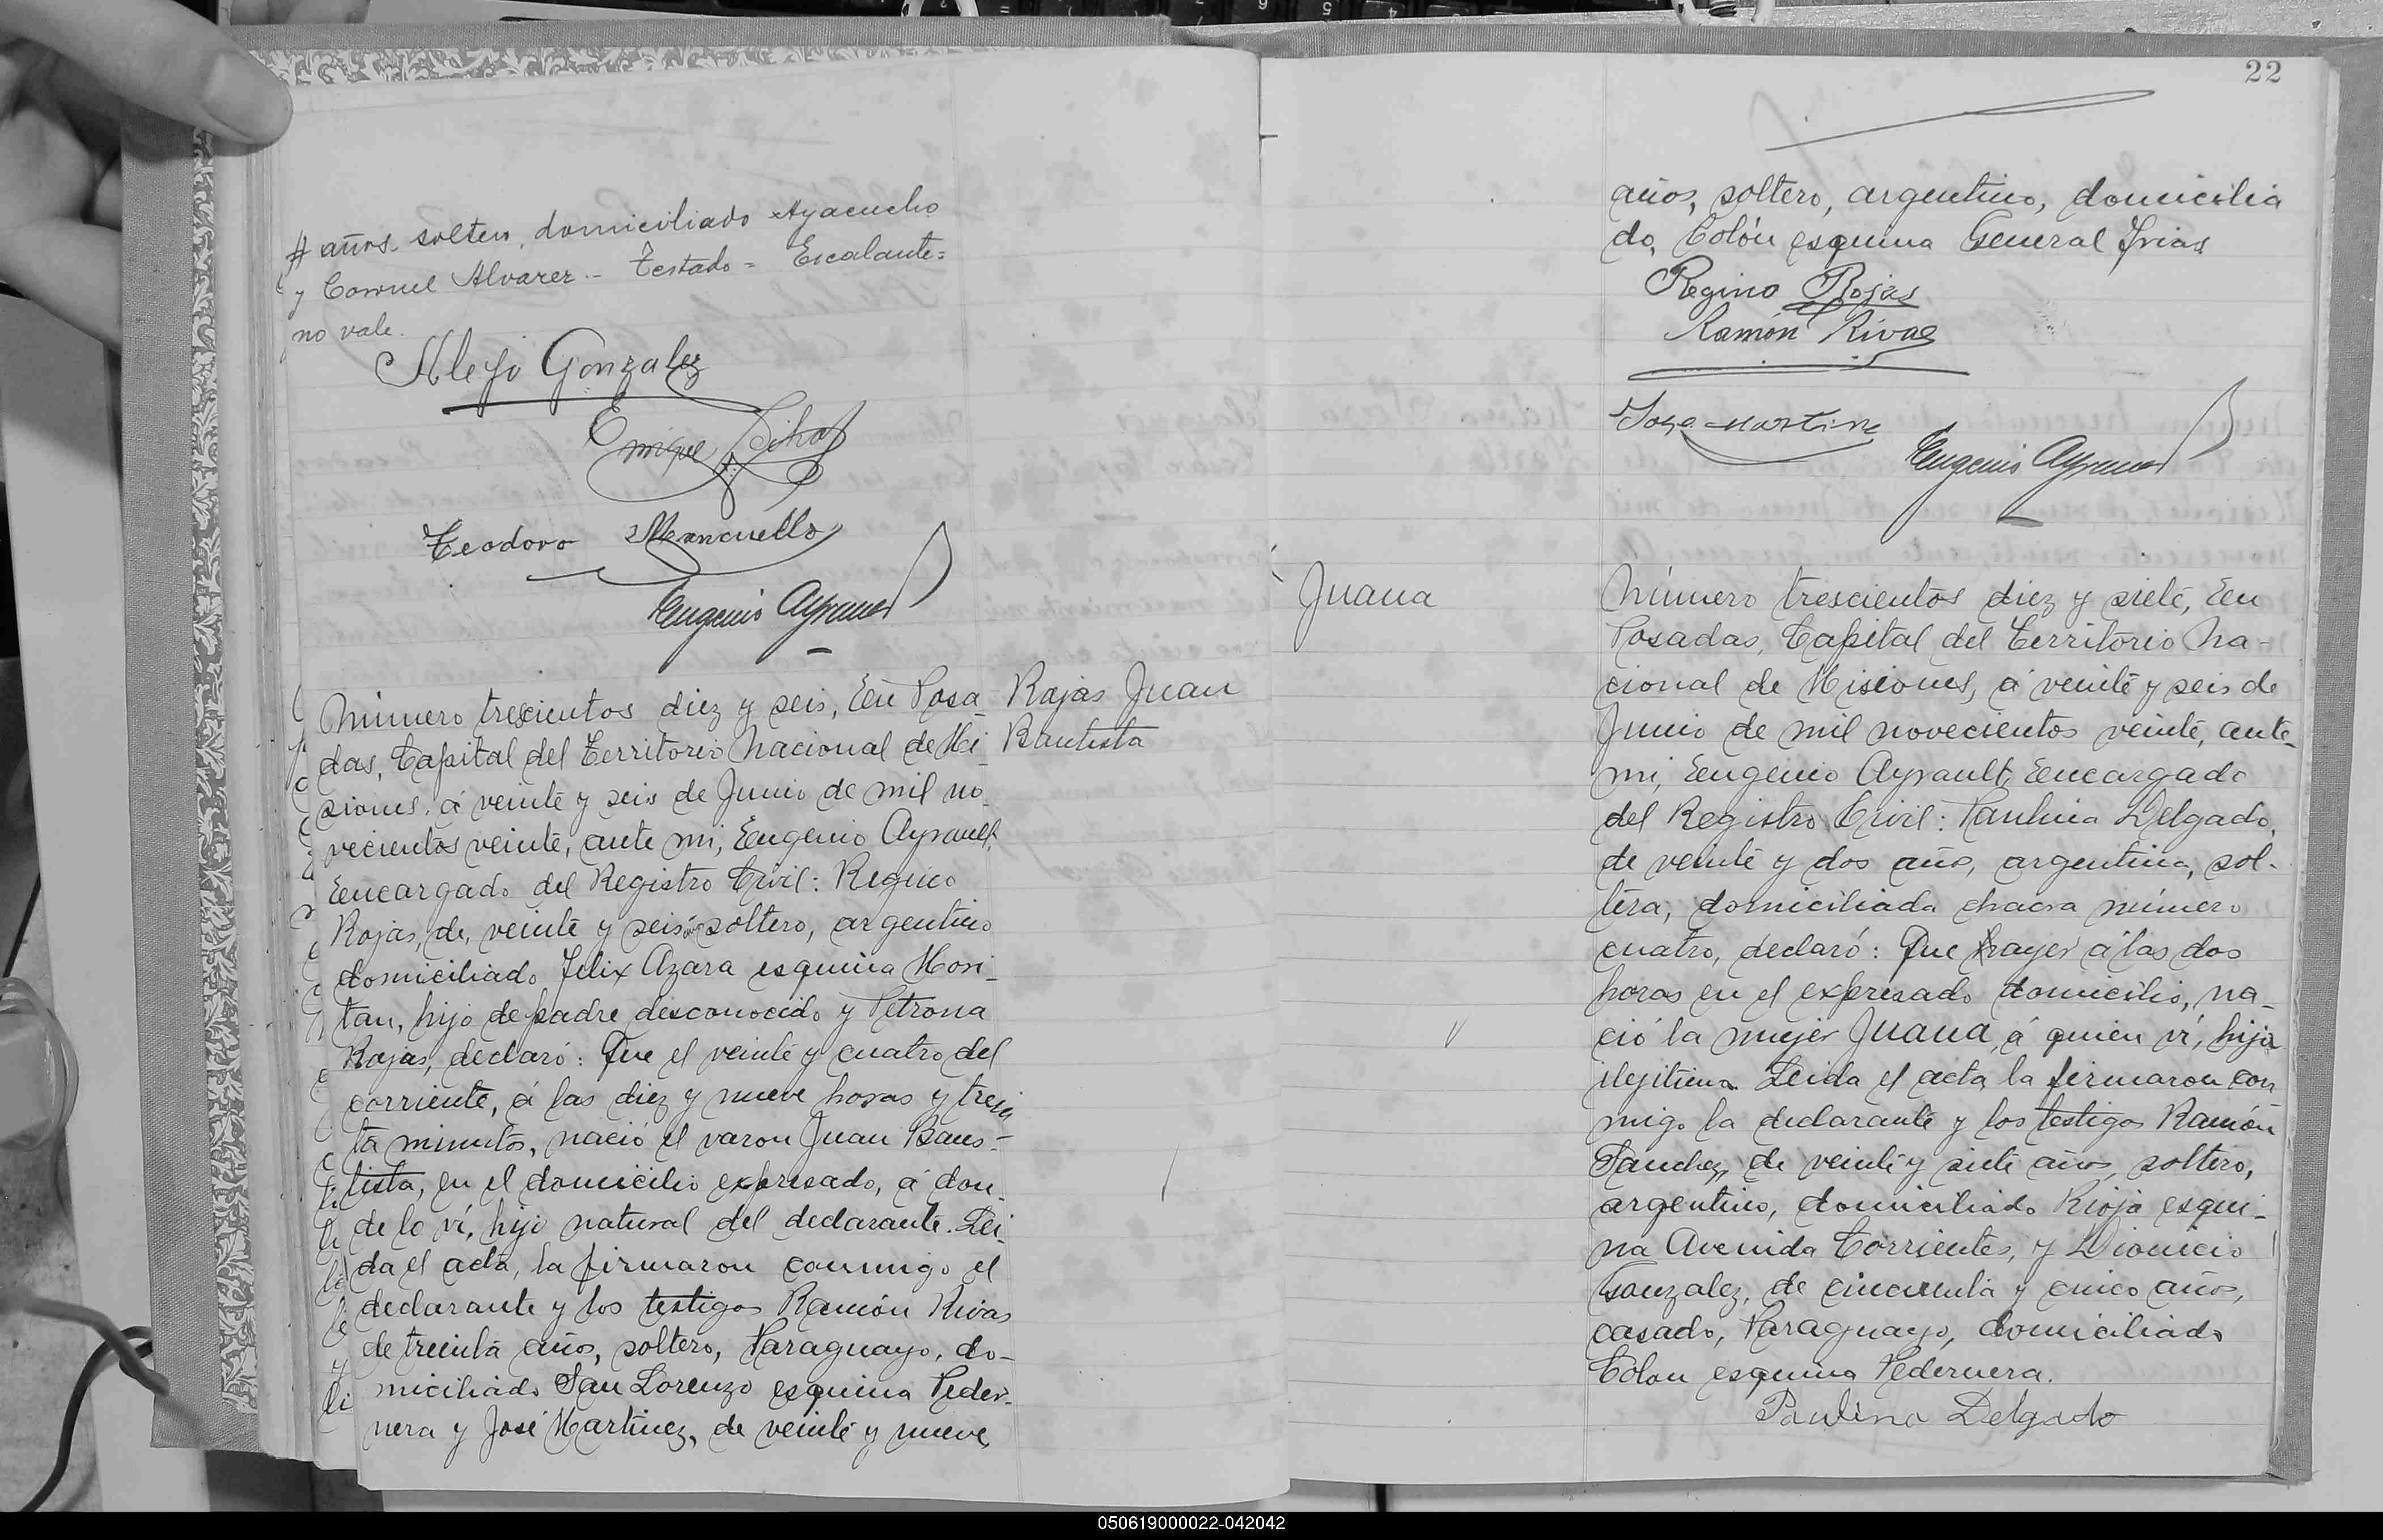 # años. soltero, domiciliado Ayacucho
y Coronel Alvarez - Testado = Escalante =
no vale.
Alejo Gonzalez
Enrique
Teodoro Mancuello
Eugenio Ayrault
Número trescientos diez y seis, En Posa-
das, Capital del Territorio Nacional de Mi-
siones, á veinte y seis de Junio de mil no-
vecientos veinte, ante mi, Eugenio Ayrault,
Encargado del Registro Civil: Regino
Rojas, de, veinte y seis años soltero, argentino
domiciliado Felix Azara esquina Mori-
tan, hijo de padre desconocido y Petrona
Rojas, declaró: Que el veinte y cuatro del
corriente, á las diez y nueve horas y trein
ta minutos, nació el varon Juan Baus-
tista, en el domicilio expresado, á don-
de lo ví, hijo natural del declarante. Lei-
da el acta, la firmaron conmigo el
declarante y los testigos Ramón Rivas
de treinta años, soltero, Paraguayo, do-
miciliado San Lorenzo esquina Peder-
nera y José Martinez, de veinte y nueve
Rojas Juan
Bautista
22
años, soltero, argentino, domicilia
do, Colón esquina General Frias
Regino Rojas
Ramón Rivas
Jose Martine
Eugenio Ayrault
Juana
Número trescientos diez y siete, En
Posadas, Capital del Territorio Na-
cional de Misiones, á veinte y seis de
Junio de mil novecientos veinte, ante
mi, Eugenio Ayrault, Encargado
del Registro Civil: Paulina Delgado,
de veinte y dos años, argentina, sol-
tera, domiciliada chacra número
cuatro, declaró: Que ayer á las dos
horas en el expresado domicilio, na-
ció la mujer Juana, á quien ví, hija
ilejitima. Leida el acta, la firmaron con
migo la declarante y los testigos Ramón
Sanchez, de veinte y siete años, soltero,
argentino, domiciliado Rioja esqui-
na Avenida Corrientes, y Dionicio
Gonzalez, de cincuenta y cinco años,
casado, Paraguayo, domiciliado
Colon esquina Pedernera.
Paulina Delgado
050619000022-042042